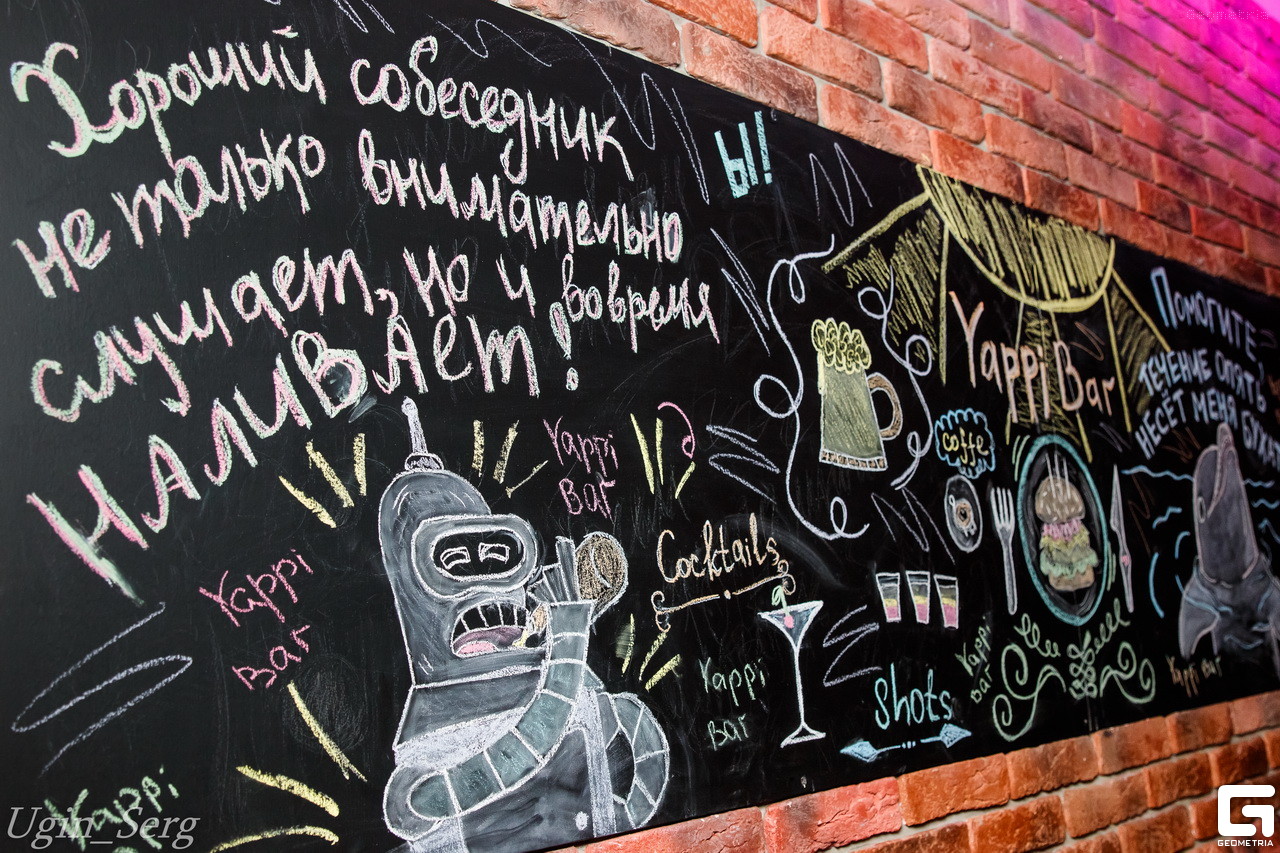 Хороший собеседник
не только внимательно
слушает, но и вовремя
НАЛИВАЕТ!
Ы!
Yappi Bar
Помогите
ТЕЧЕНИЕ ОПЯТЬ
НЕСЁТ МЕНЯ
coffe
Yappi
Bar
Cocktails
Yappi
Bar
Yappi
Bar
Shots
Yappi
Bar
Yappi Bar
Yappi
Ugin_Serg
G
GEOMETRIA